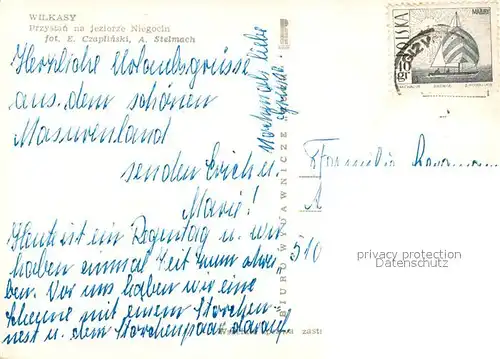 WILKASY
Przystań na jeziorze Niegocin
fot. E. Czapliński, A. Stelmach
Herzliche Urlaubsgrüsse
aus dem schönen
Masurenland
senden Erich u.
Marie!
Heute ist ein Regentag u. wir
haben einmal Zeit zum schrei
ben. Vor uns haben wir eine
Scheune mit einem Storchen-
nest u. dem Storchenpaar darauf
Nochmals liebe
Grüsse
BIURO WYDAWNICZE RUCH
Familie
510
POLSKA
10 gr
privacy protection
Datenschutz